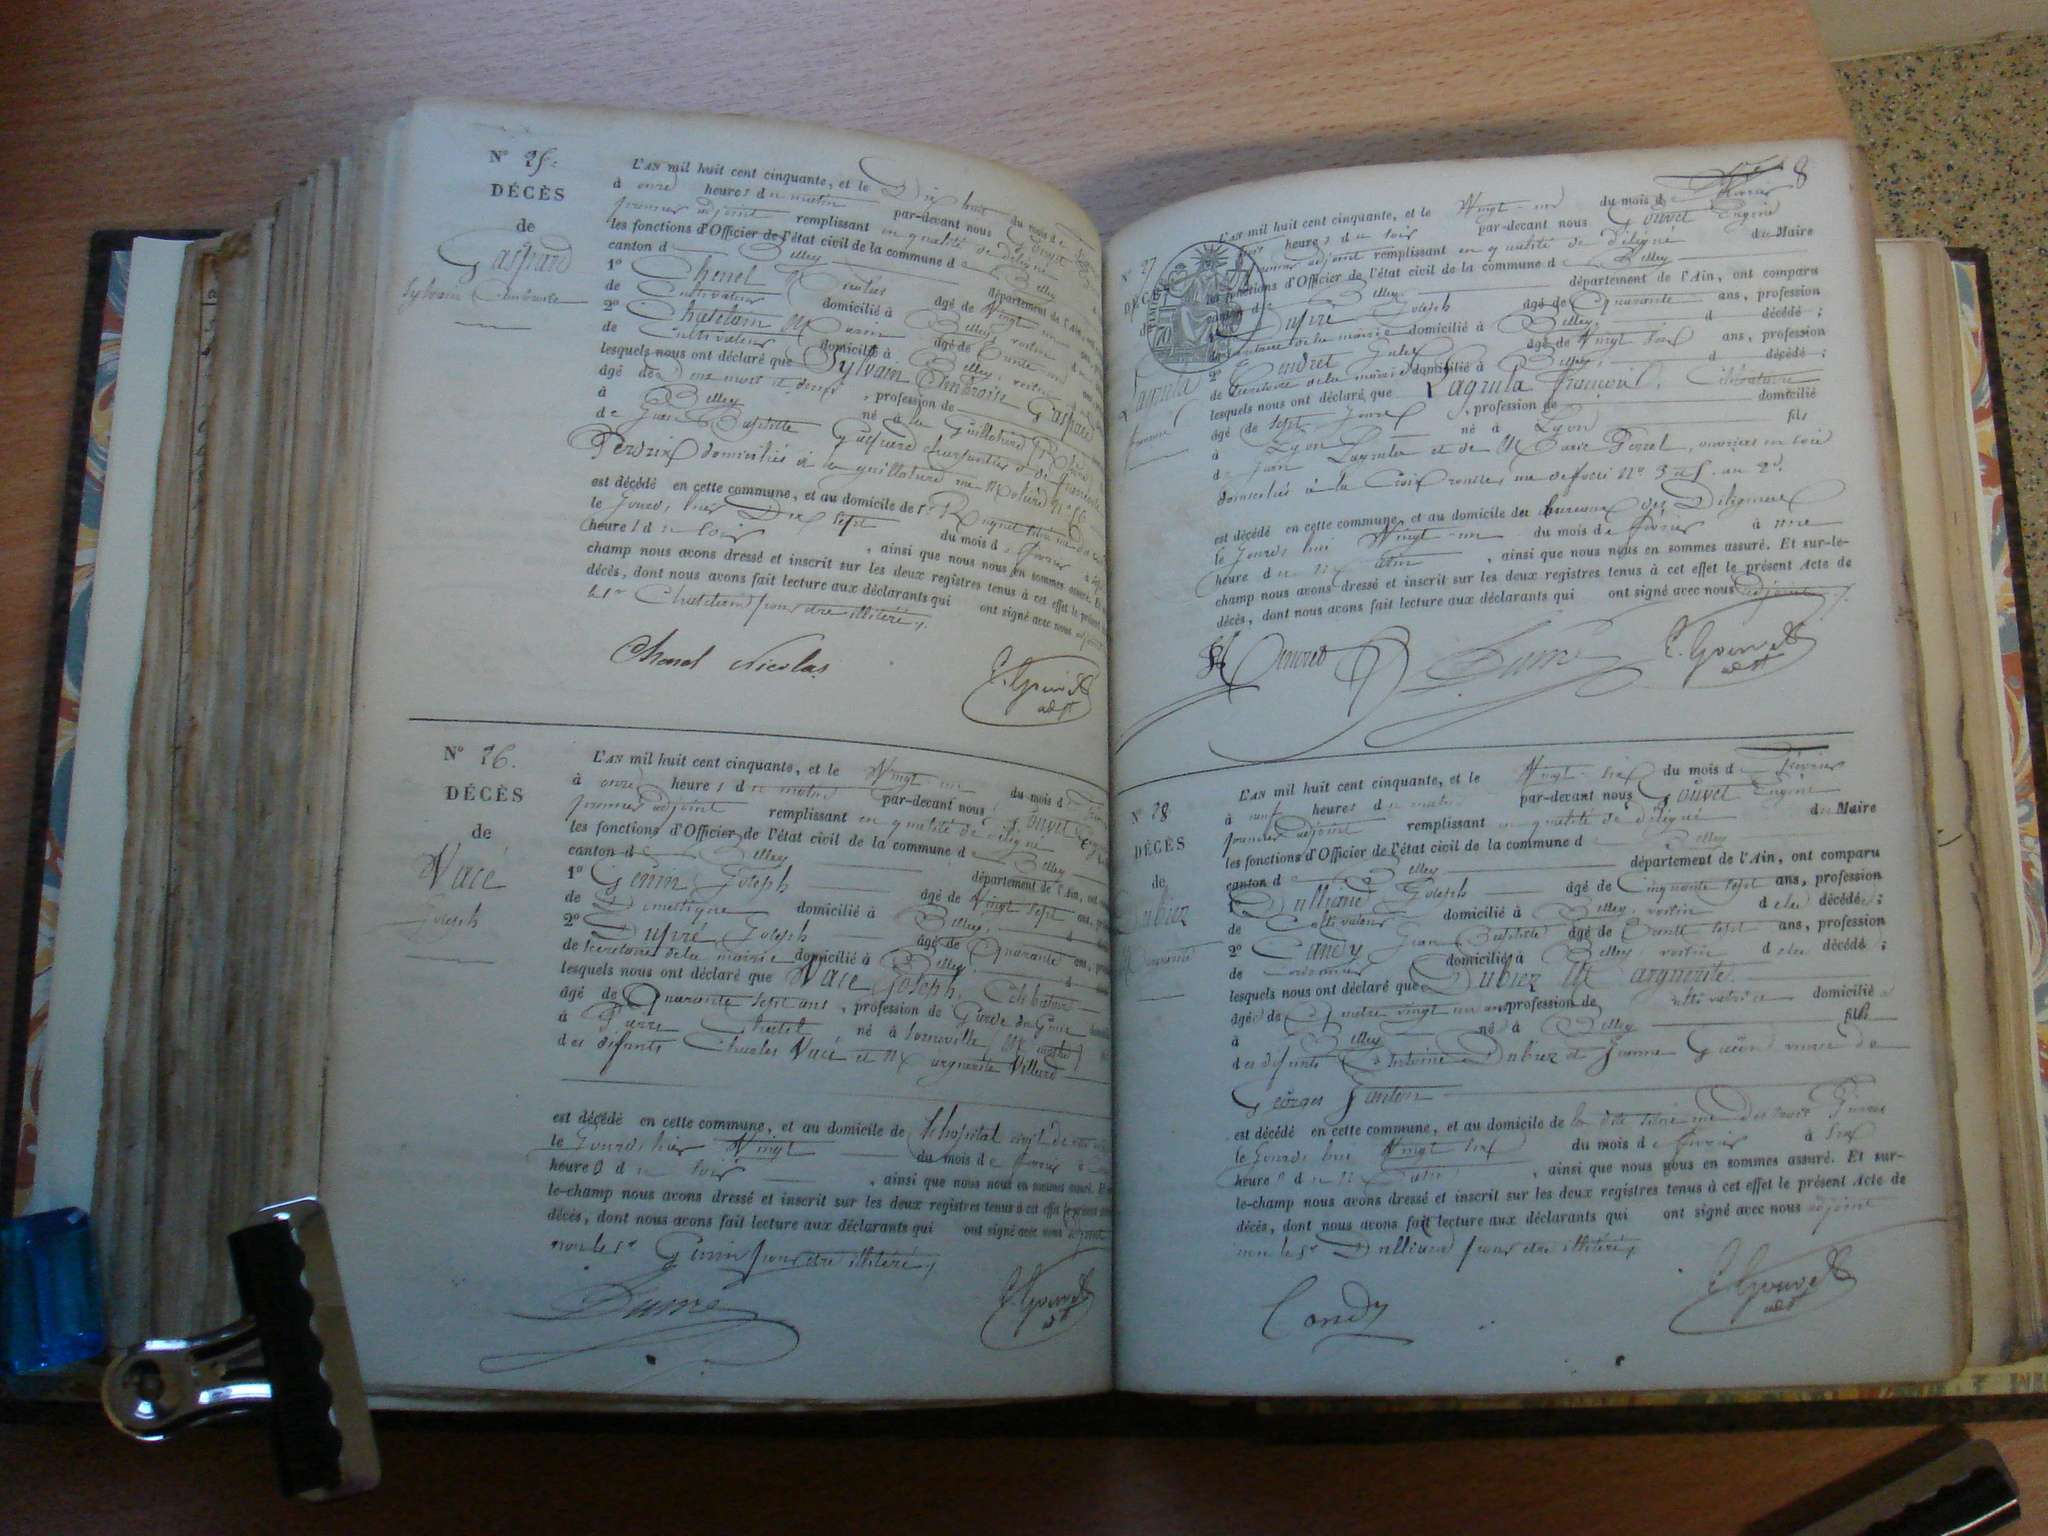 Nº 25.
DÉCÈS
de
Gaspard
Sylvain Ambroise
L'AN mil huit cent cinquante, et le Dix huit du mois de
à onze heures du matin par-devant nous Gouvet
premier adjoint remplissant en qualité de délégué
les fonctions d'Officier de l'état civil de la commune de Belley
canton de Belley département de l'Ain, ont
1º Chenel Nicolas âgé de Vingt
de Cultivateur domicilié à Belley, voisin
2º Chatelain âgé de Trente
de Cultivateur domicilié à Belley, voisin
lesquels nous ont déclaré que Sylvain Ambroise Gaspard
âgé de , profession de
à Belley né à la Guillotière (Rhône)
de Jean Baptiste Gaspard charpentier et de Françoise
Perdrix domiciliés à la guillotière rue
est décédé en cette commune, et au domicile de
le Jourd'hier Dix sept du mois de février à
heures du soir , ainsi que nous nous en sommes assuré. Et
champ nous avons dressé et inscrit sur les deux registres tenus à cet effet le présent
décès, dont nous avons fait lecture aux déclarants qui ont signé avec nous adjoint
le Sr Chatelain pour être illitéré.
Chenel Nicolas
E. Gouvet
adjt
Nº 26.
DÉCÈS
de
Vacé
Joseph
L'AN mil huit cent cinquante, et le Vingt-un du mois de
à onze heures du matin par-devant nous Gouvet
premier adjoint remplissant en qualité de délégué
les fonctions d'Officier de l'état civil de la commune de Belley
canton de Belley département de l'Ain, ont
1º Genin Joseph âgé de Vingt sept ans,
de Domestique domicilié à Belley,
2º Dupré Joseph âgé de Quarante ans,
de Secrétaire de la mairie domicilié à Belley,
lesquels nous ont déclaré que Vacé Joseph, Célibataire
âgé de Quarante sept ans, profession de Garde du Génie
à Pierre Chatel né à
des défunts Charles Vacé et Marguerite Villard
est décédé en cette commune, et au domicile de l'hopital
le Jourd'hier Vingt du mois de février à
heures du soir , ainsi que nous nous en sommes assuré. Et
le-champ nous avons dressé et inscrit sur les deux registres tenus à cet effet le présent
décès, dont nous avons fait lecture aux déclarants qui ont signé avec nous adjoint
non le Sr Genin pour être illitéré,
Dupré
E. Gouvet
adjt
8
Nº 27
DÉCÈS
Lagrula
L'AN mil huit cent cinquante, et le Vingt-un du mois de février
heures du soir par-devant nous Gouvet Eugène
premier adjoint remplissant en qualité de délégué du Maire
les fonctions d'Officier de l'état civil de la commune de Belley
canton de Belley département de l'Ain, ont comparu
Dupré Joseph âgé de Quarante ans, profession
Secrétaire de la mairie domicilié à Belley, d décédé ;
2º Jules âgé de Vingt six ans, profession
de Secrétaire de la mairie domicilié à Belley, d décédé ;
lesquels nous ont déclaré que Lagrula François, Célibataire
âgé de sept jours , profession de domicilié
à Lyon né à Lyon fils
de Jean Lagrula et de Marie Perret, ouvriers en soie
domiciliés à la Croix rousse, rue
est décédé en cette commune, et au domicile des bureaux des Diligences
le Jourd'hui Vingt-un du mois de février à
heure du Matin , ainsi que nous nous en sommes assuré. Et sur-le-
champ nous avons dressé et inscrit sur les deux registres tenus à cet effet le présent Acte de
décès, dont nous avons fait lecture aux déclarants qui ont signé avec nous adjoint
Dupré
E. Gouvet
adjt
Nº 28
DÉCÈS
de
Dubiez
Marguerite
L'AN mil huit cent cinquante, et le Vingt-six du mois de février
à neuf heures du matin par-devant nous Gouvet Eugène
premier adjoint remplissant en qualité de délégué du Maire
les fonctions d'Officier de l'état civil de la commune de Belley
canton de Belley département de l'Ain, ont comparu
1º Dulliand Joseph âgé de Cinquante sept ans, profession
de Cultivateur domicilié à Belley, voisin de la décédée ;
2º Candy Jean Baptiste âgé de Trente sept ans, profession
de Cordonnier domicilié à Belley, voisin de la décédée ;
lesquels nous ont déclaré que Dubiez Marguerite
âgée de Quatre vingt un ans profession de cultivatrice domicilié
à Belley né à Belley fille
des défunts Antoine Dubiez et Jeanne veuve de
Georges
est décédé en cette commune, et au domicile de
le Jourd'hui Vingt six du mois de février à six
heures du Matin , ainsi que nous nous en sommes assuré. Et sur-
le-champ nous avons dressé et inscrit sur les deux registres tenus à cet effet le présent Acte de
décès, dont nous avons fait lecture aux déclarants qui ont signé avec nous adjoint
non le Sr Dulliand pour être illitéré,
Candy
E. Gouvet
adjt